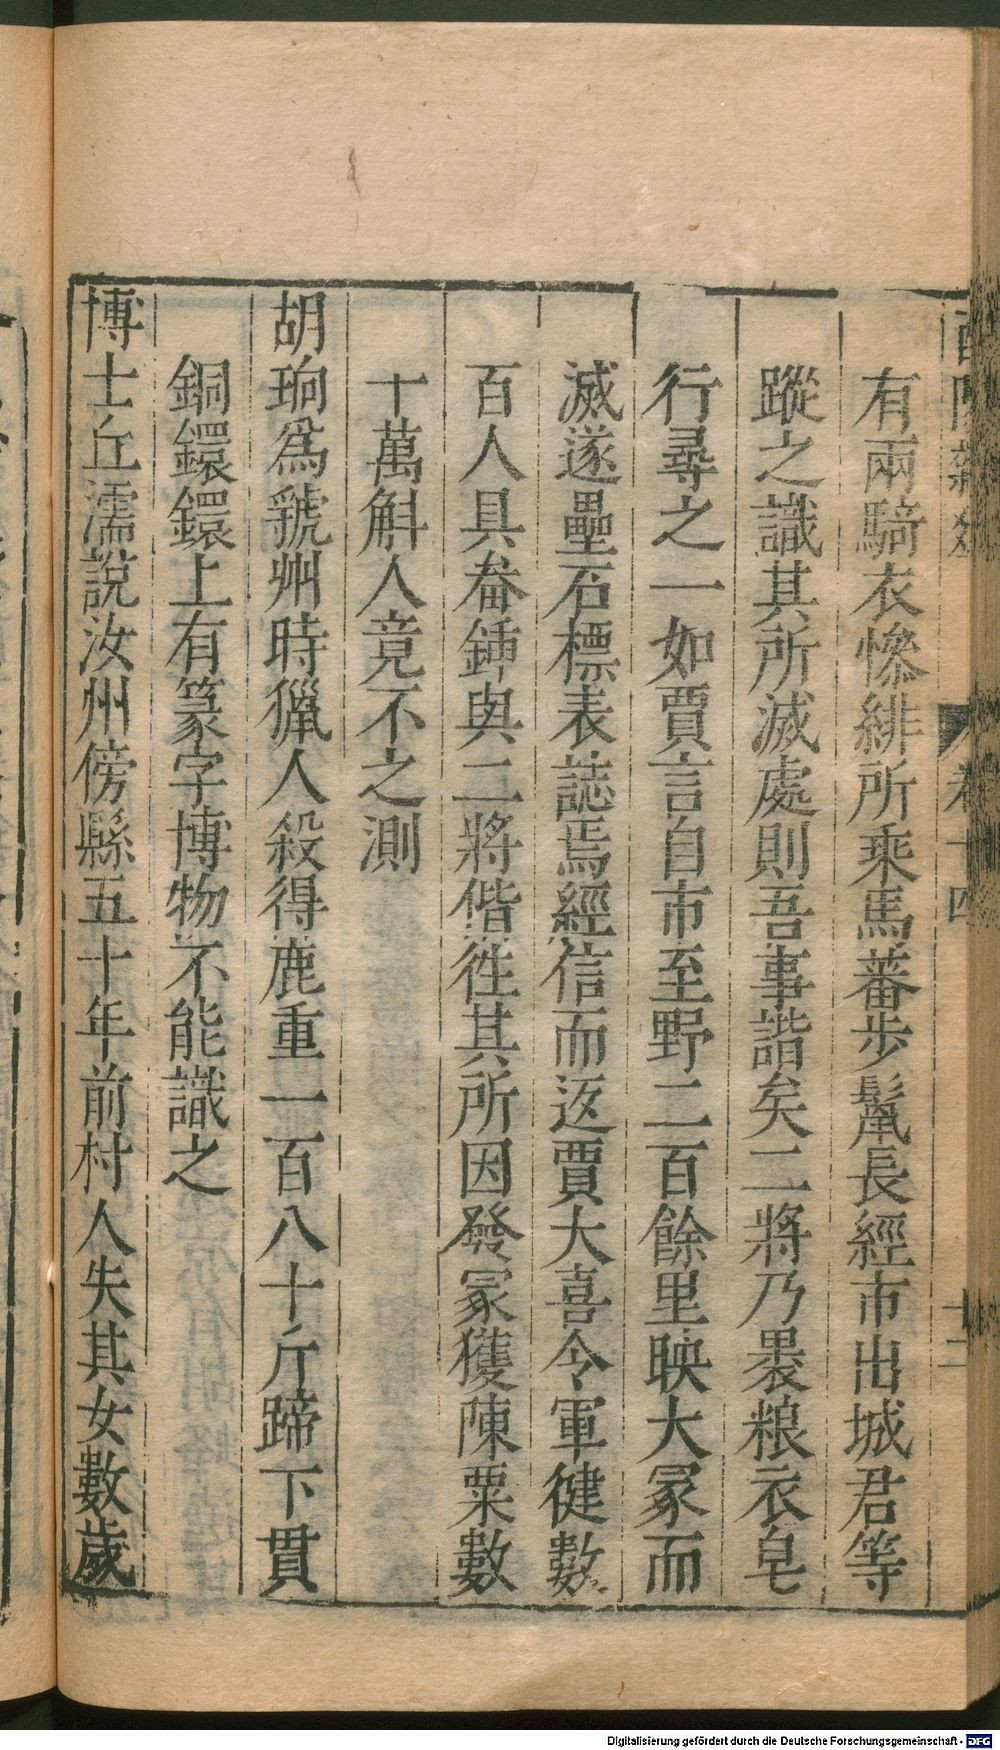 有兩騎衣慘緋所乘馬蕃步鬣長經市出城君等
蹤之識其所滅處則吾事諧矣二將乃裹粮衣皂
行尋之一如賈言自市至野二百餘里映大冢而
滅遂壘石標表誌焉經信而返賈大喜令軍健數
百人具畚鍤與二將偕徃其所因發冢獲陳粟數
十萬斛人竟不之測
胡珦爲虢州時獵人殺得鹿重一百八十斤蹄下貫
銅鐶鐶上有篆字博物不能識之
博士丘濡說汝州傍縣五十年前村人失其女數歲
Digitalisierung gefördert durch die Deutsche Forschungsgemeinschaft - DFG